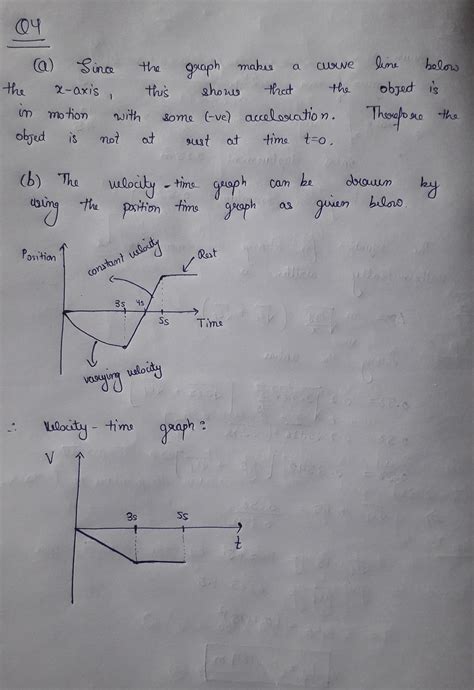 Q4
(a) Since the graph makes a curve line below
the x-axis, this shows that the object is
in motion with some (-ve) acceleration. Therefore the
object is not at rest at time t=0.
(b) The velocity-time graph can be drawn by
using the position time graph as given below.
Position
constant velocity
Rest
3s 4s
5s
Time
varying velocity
∴ Velocity-time graph:
V
3s 5s
t